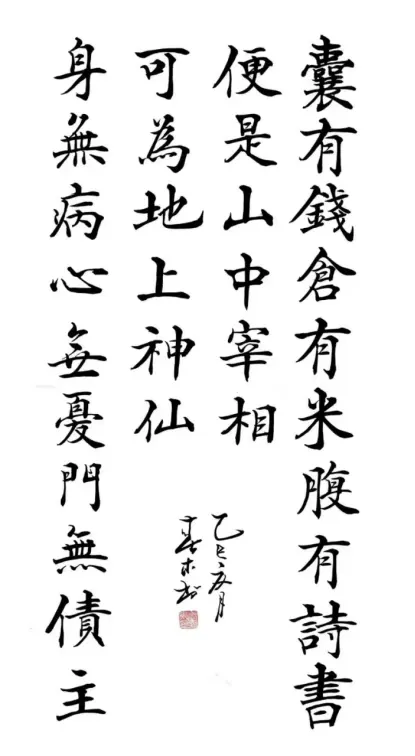 囊有錢倉有米腹有詩書
便是山中宰相
身無病心無憂門無債主
可為地上神仙
乙巳夏月